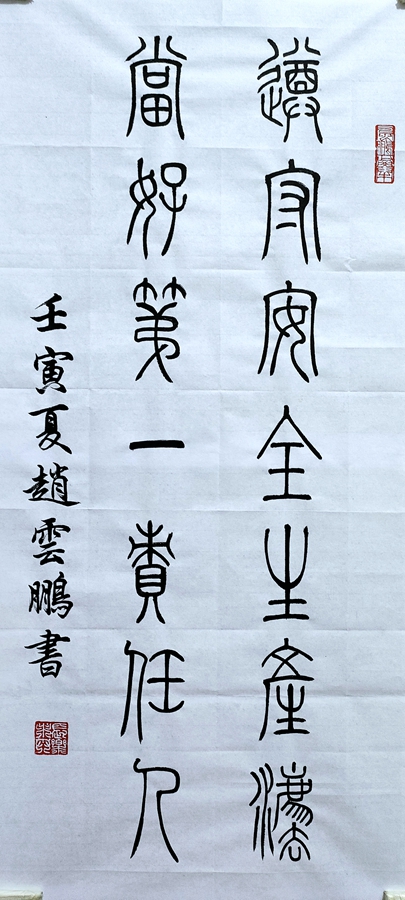 遵守安全生產灋
當好第一責任人
壬寅夏趙雲鵬書